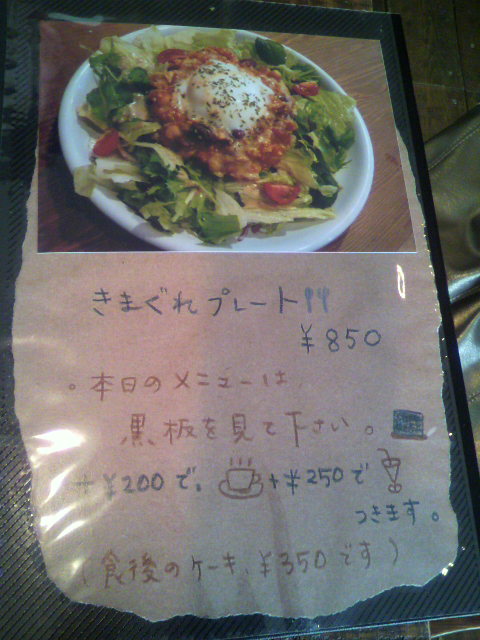 きまぐれプレート
¥850
。本日のメニューは、
黒板を見て下さい。
+¥200で、 +¥250で
つきます。
(食後のケーキ、¥350です)